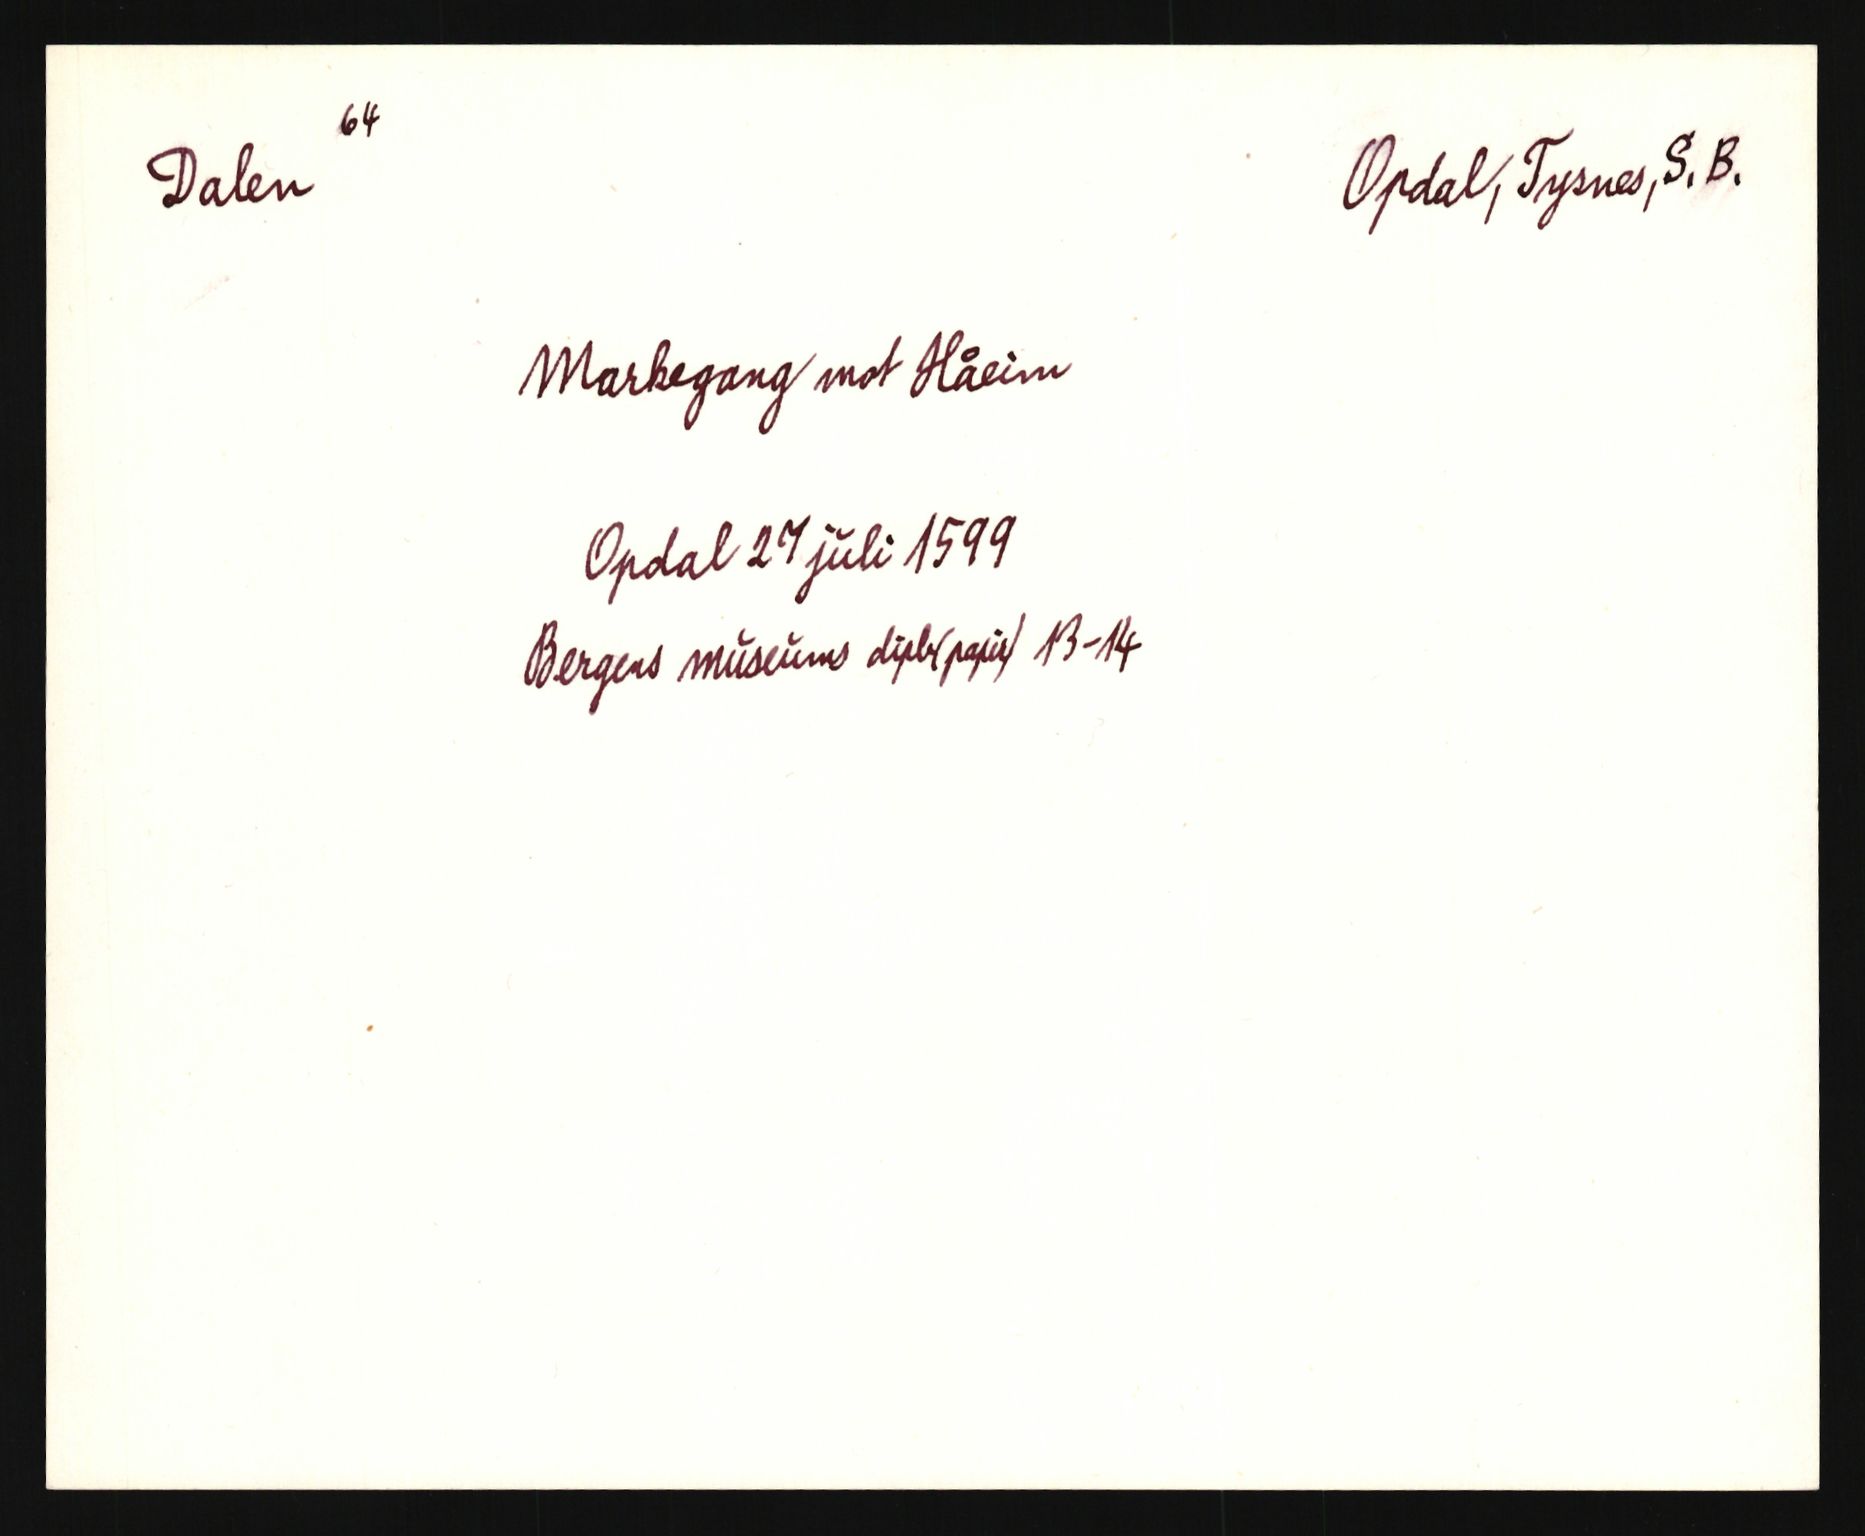 Dalen 64
Opdal, Tysnes, S. B.
Markegang mot Håeim
Opdal 27 juli 1599
Bergens museums dipl. (papir) 13-14